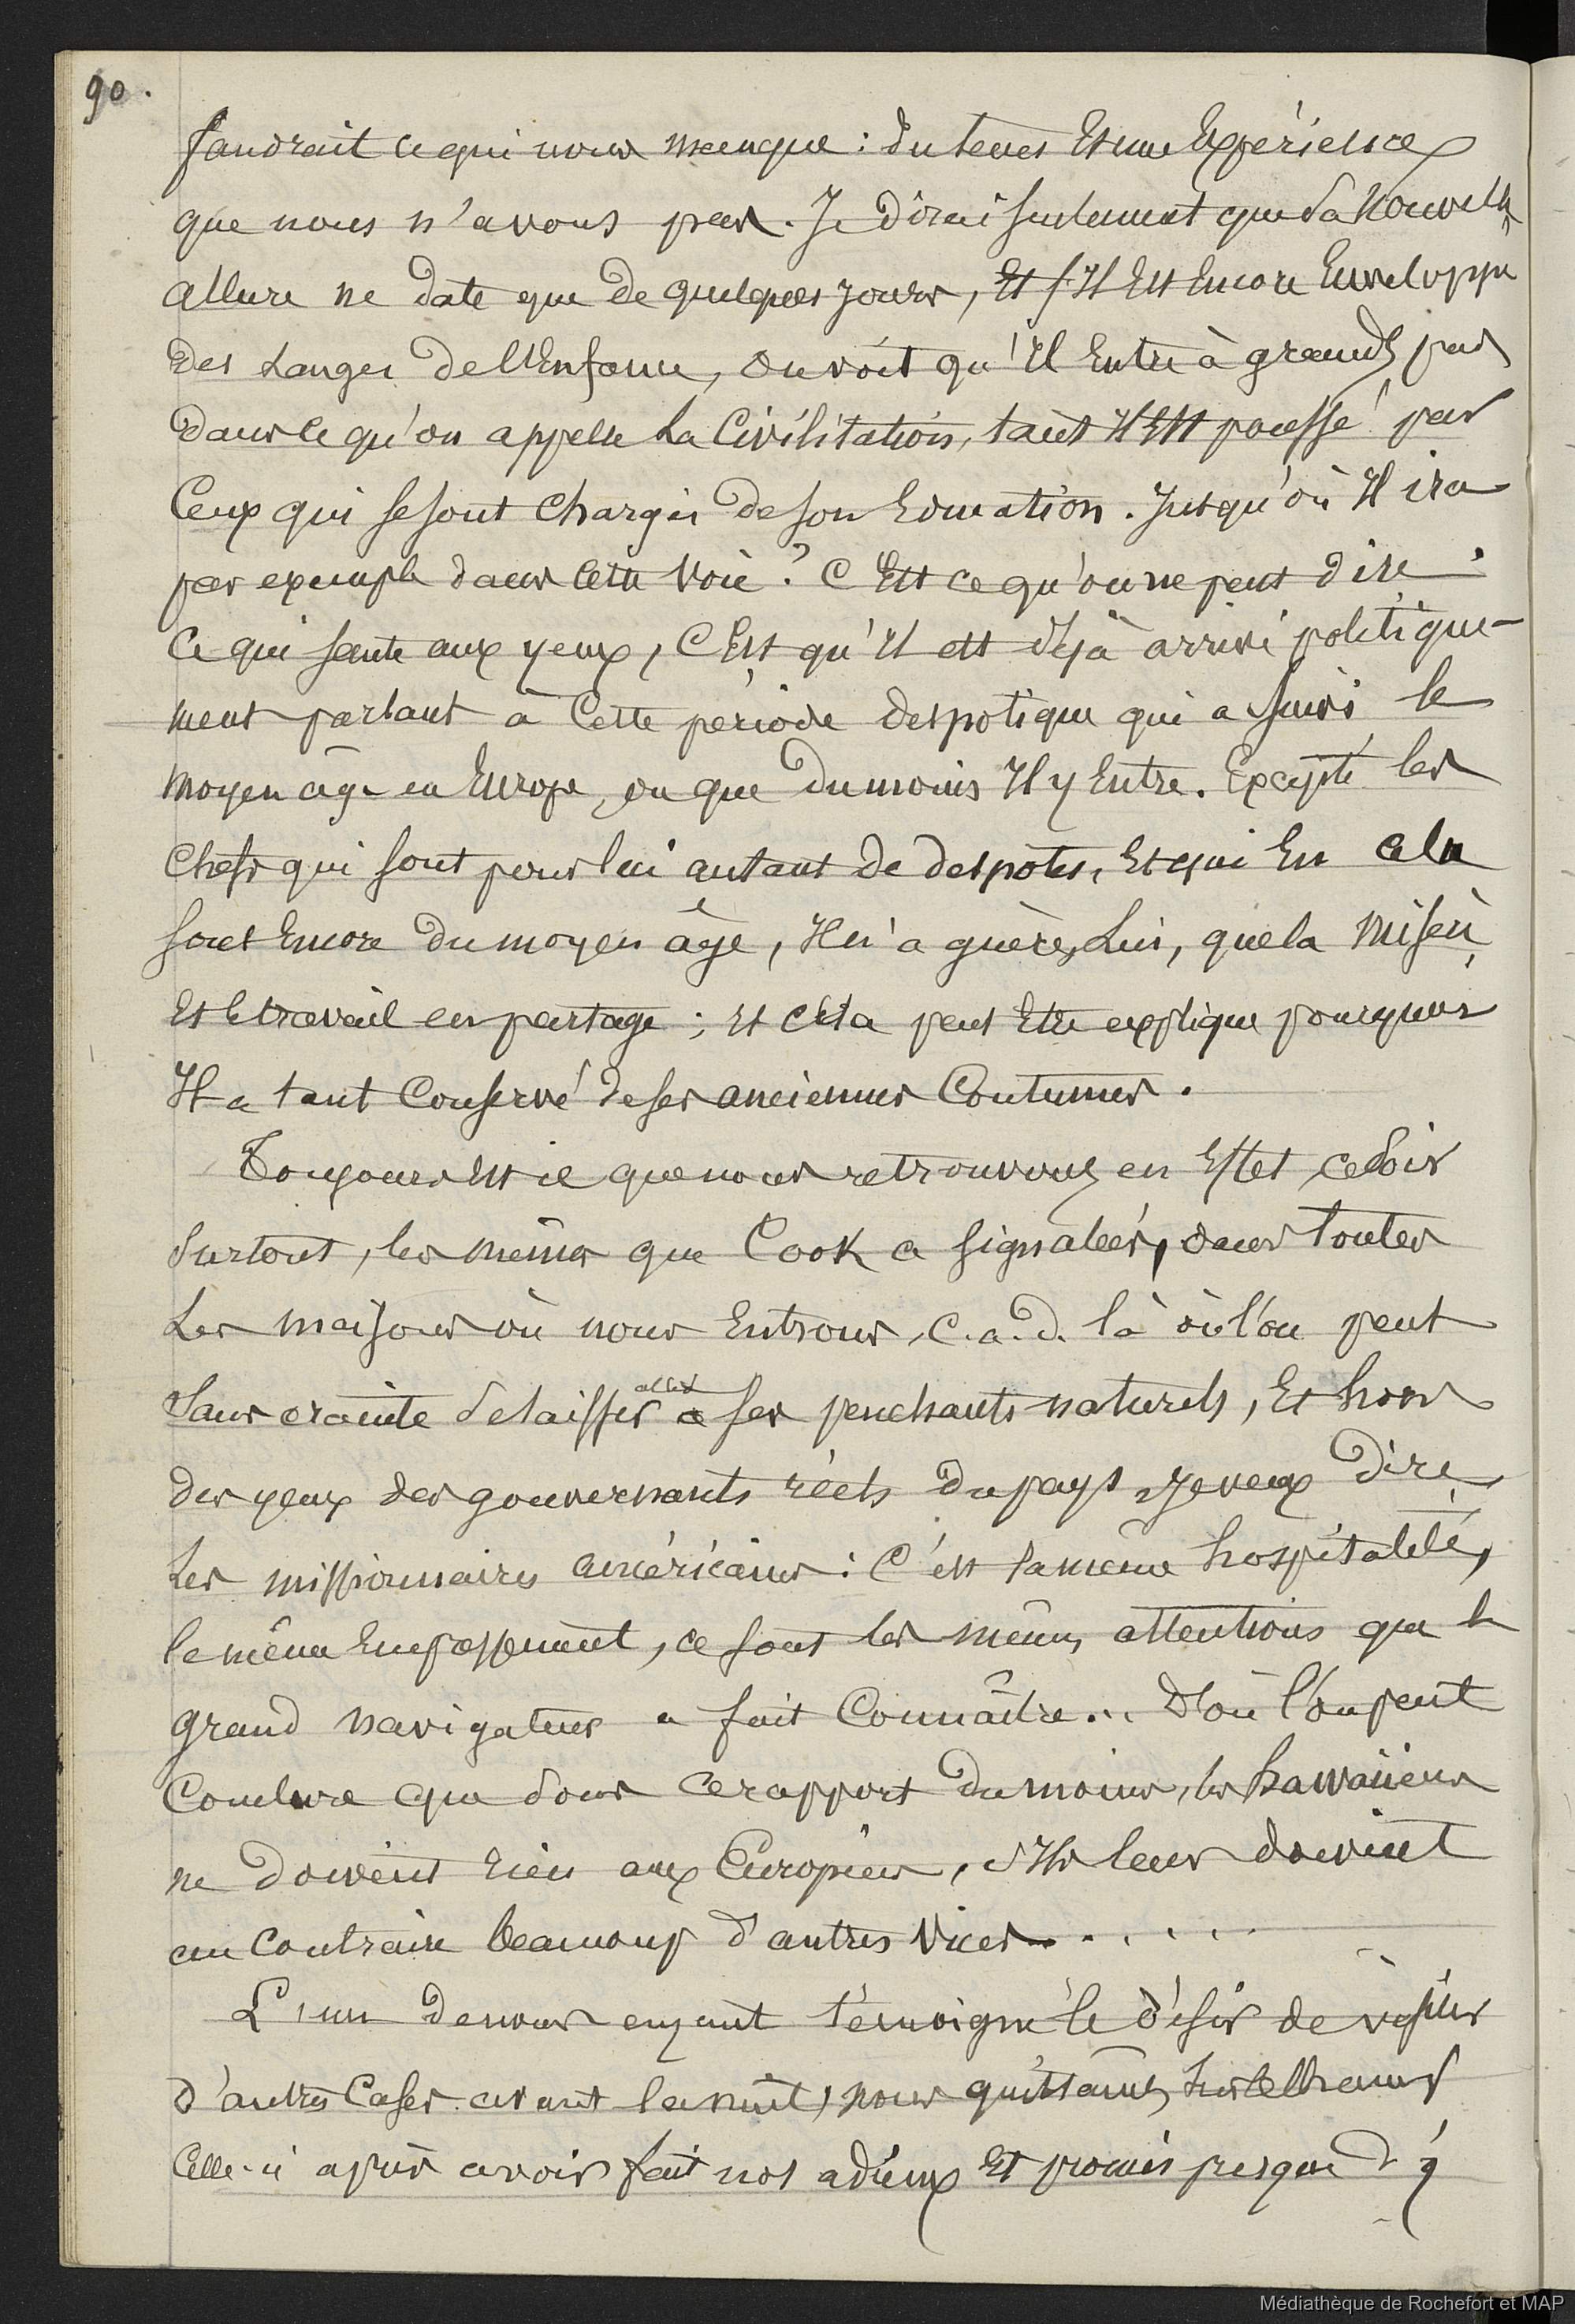 90.
faudrait ce qui nous manque : du tems Et une Expérience
que nous n'avons pas. Je dirai seulement que sa Nouvelle
allure ne date que de quelques jours, Et s'Il Est Encore Enveloppé
des Langes de l'Enfance, on voit qu'Il Entre à grands pas
dans ce qu'on appelle La Civilisation, tant Il Est poussé par
Ceux qui se sont Chargés de son Education. Jusqu'où Il ira
par exemple dans cette Voie ? C'Est ce qu'on ne peut dire.
Ce qui saute aux yeux, C'Est qu'Il est déjà arrivé politique-
ment parlant à Cette période despotique qui a suivi le
moyen âge en Europe, ou que du moins Il y Entre. Excepté les
Chefs qui sont pour lui autant de despotes, Et qui En cela
sont Encore du moyen âge, Il n'a guères, Lui, que la Misère
Et le travail en partage ; Et cela peut Etre explique pourquoi
Il a tant Conservé de ses anciennes Coutumes.
Toujours Est il que nous retrouvons en Effet, ce soir
surtout, les mêmes que Cook a signalées, dans toutes
Les maisons où nous Entrons, c.a.d. là où l'on peut
sans crainte se laisser aller à ses penchants naturels, Et hors
des yeux des gouvernants réels du pays, je veux dire,
Les missionnaires américains : C'est la même hospitalité,
le même Empressement, ce sont les mêmes attentions que le
grand navigateur a fait Connaître... D'où l'on peut
Conclure que sous ce rapport du moins, les hawaiiens
ne doivent rien aux Européens, s'Ils leur doivent
au Contraire beaucoup d'autres Vices......
L'un de nous ayant témoigné le désir de visiter
d'autres Cases avant la nuit, nous quittâmes
Celle-ci après avoir fait nos adieux Et promis presque d'y
Médiathèque de Rochefort et MAP